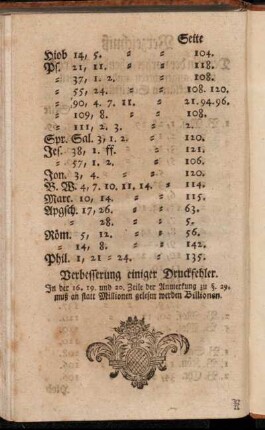 Seite
Hiob 14, 5. = = 104.
Ps. 21, 11. = = 118.
= 37, 1. 2. = = 108.
= 55, 24. = = 108. 120.
= 90, 4. 7. 11. = 21. 94. 96.
= 109, 8. = = 108.
= 111, 2. 3. = = 2.
Spr. Sal. 3, 1. 2. = = 120.
Jes. 38, 1. ff. = = 121.
= 57, 1. 2. = = 106.
Jon. 3, 4. = = 120.
B. W. 4, 7. 10. 11. 14. = = 114.
Marc. 10, 14. = = 115.
Apgsch. 17, 26. = = 63.
= 28. = = 5.
Röm. 5, 12. = = 56.
= 14, 8. = = 142.
Phil. 1, 21 = 24. = = 135.
Verbesserung einiger Druckfehler.
In der 16. 19. und 20. Zeile der Anmerkung zu §. 29.
muß an statt Millionen gelesen werden Billionen.